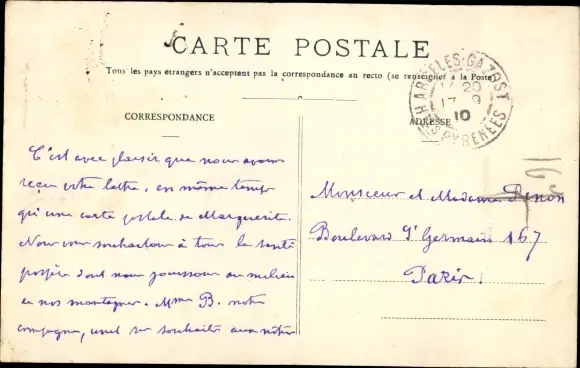 CARTE POSTALE
Tous les pays étrangers n'acceptent pas la correspondance au recto (se renseigner à la Poste)
ARGELES-GAZOST
17 - 9
10
HTES PYRENEES
CORRESPONDANCE
ADRESSE
C'est avec plaisir que nous avons
reçu votre lettre, en même temps
qu'une carte postale de Marguerite.
Nous vous souhaitons à tous la santé
dont nous jouissons au milieu
de nos montagnes. Mme B. notre
compagne, vous souhaite
Monsieur et Madame
Boulevard St Germain 167
Paris